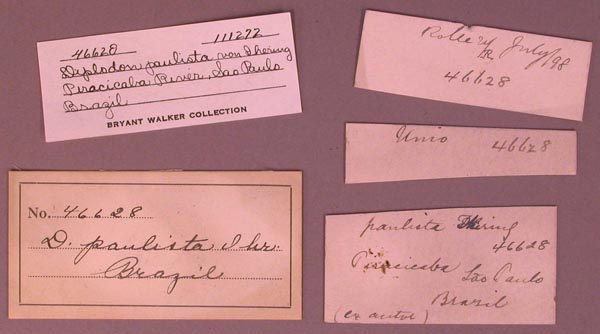 46628 111272
Diplodon paulista von Ihering
Piracicaba River, Sao Paulo
Brazil
BRYANT WALKER COLLECTION
No. 46628
D. paulista Ihr.
Brazil
Rolle July/98
46628
Unio 46628
paulista Ihering
46628
Piracicaba Sao Paulo
Brazil
(ex autor)